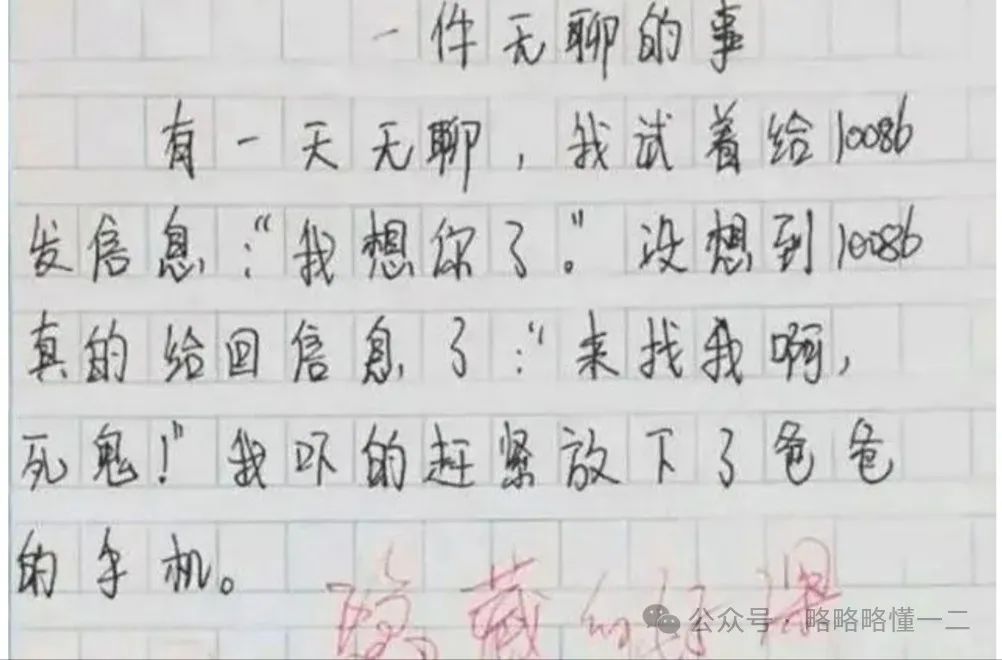 一件无聊的事
有一天无聊，我试着给10086
发信息：“我想你了。”没想到10086
真的给回信息了：“来找我啊，
死鬼！”我吓的赶紧放下了爸爸
的手机。
隐藏的好深
公众号·略略略懂一二